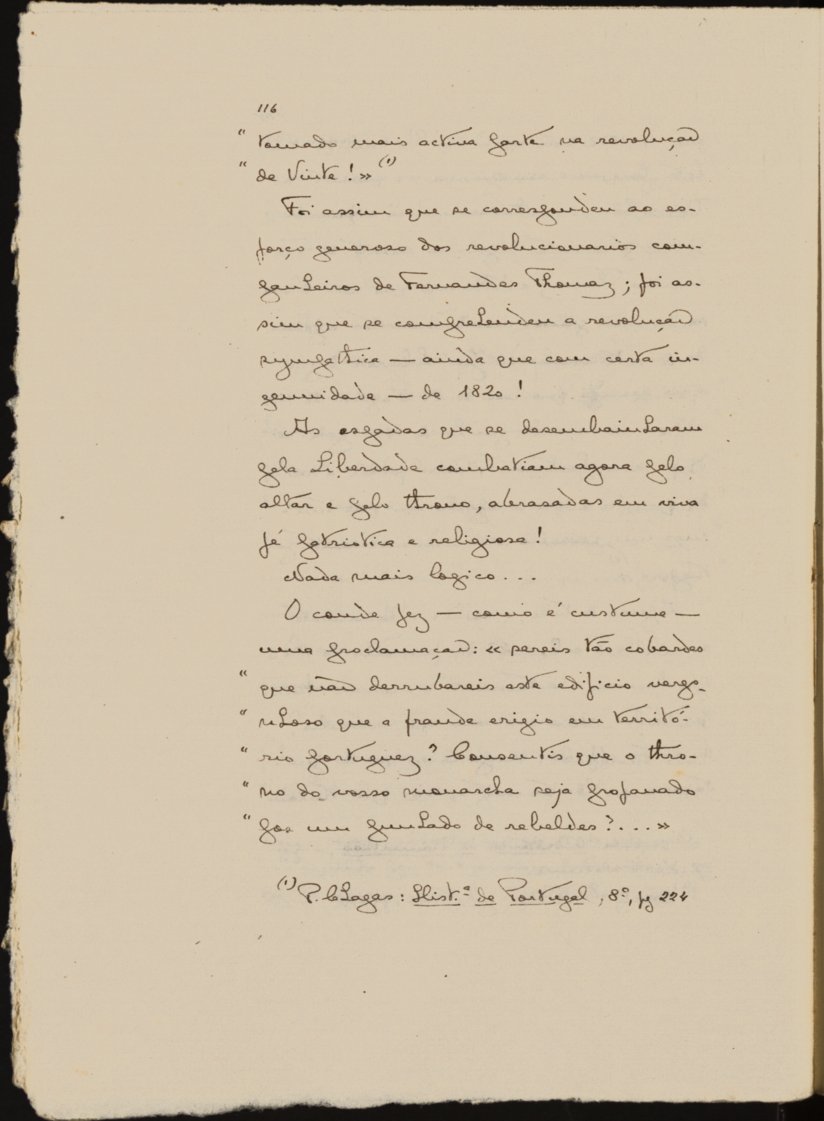 116
" tomado mais activa parte na revolução
" de Vinte!» (1)
Foi assim que se correspondeu ao es-
forço generoso dos revolucionarios com-
panheiros de Fernandes Thomaz; foi as-
sim que se comprehendeu a revolução
sympathica — ainda que com certa in-
genuidade — de 1820!
As espadas que se desembainharam
pela Liberdade combatiam agora pelo
altar e pelo throno, abrasadas em viva
fé patriotica e religiosa!
Nada mais logico...
O conde fez — como é custume —
uma proclamação: « sereis tão cobardes
" que não derrubareis este edificio vergo-
" nhoso que a fraude erigio em territó-
" rio portuguez? Consentis que o thro-
" no do vosso monarcha seja profanado
" por um punhado de rebeldes?...»
(1) P. Chagas: Hist.ª de Portugal, 8º, pg 224